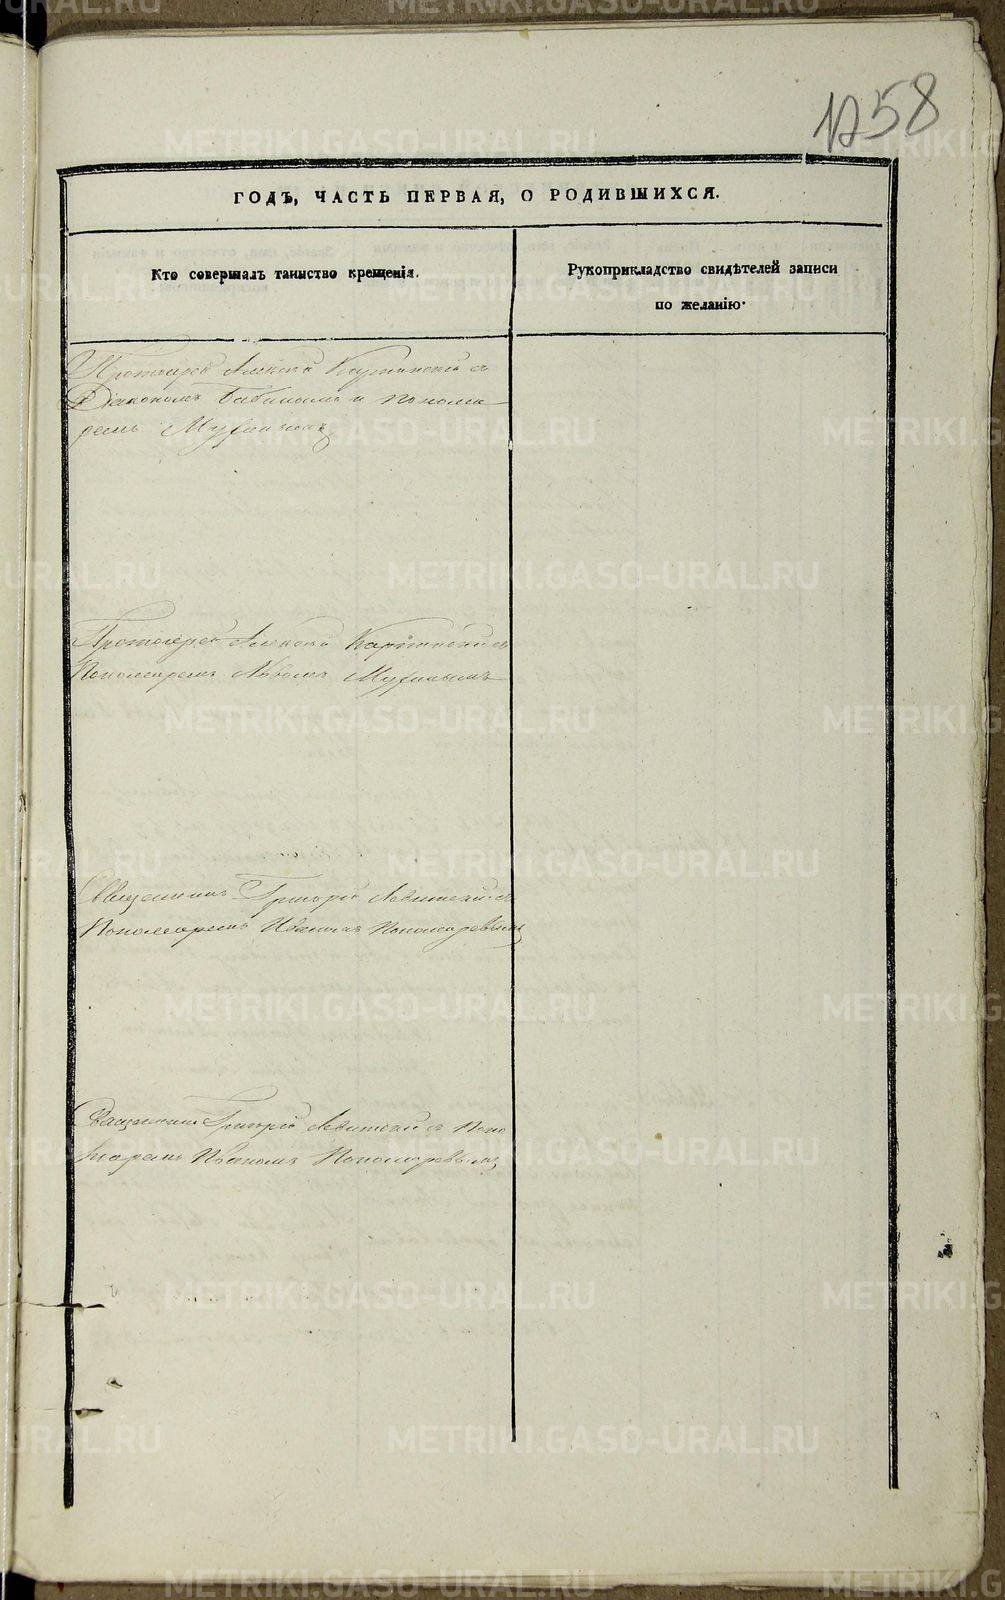 1258
ГОДЪ, ЧАСТЬ ПЕРВАЯ, О РОДИВШИХСЯ.
Кто совершалъ таинство крещенія.
Рукоприкладство свидѣтелей записи
по желанію.
Протоіерей Алексѣй съ
Діакономъ Бабинымъ и понома
ремъ Мухинымъ
Протоіерей Алексѣй съ
Пономаремъ Львомъ Мухинымъ
Священникъ Григорій Левитскій съ
Пономаремъ Иваномъ Пономаревымъ
Священникъ Григорій Левитскій съ Поно
маремъ Иваномъ Пономаревымъ
METRIKI.GASO-URAL.RU